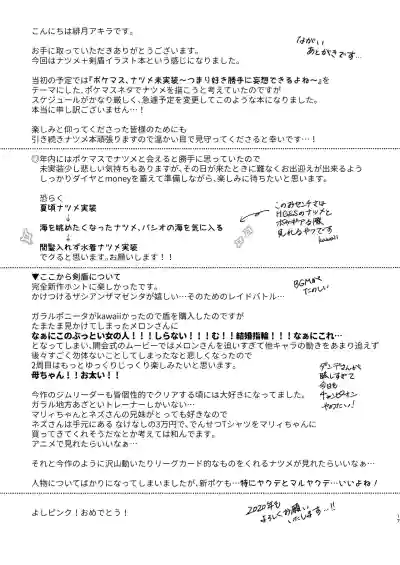 こんにちは緋月アキラです。
お手に取っていただきありがとうございます。
今回はナツメ+剣盾イラスト本という感じになりました。
ながい
あとがきです…
当初の予定では『ポケマス、ナツメ未実装～つまり好き勝手に妄想できるよね～』を
テーマにした、ポケマスネタでナツメを描こうと考えていたのですが
スケジュールがかなり厳しく、急遽予定を変更してこのような本になりました。
本当に申し訳ございません…！
楽しみと仰ってくださった皆様のためにも
引き続きナツメ本頑張りますので温かい目で見守ってくださると幸いです…！
◎年内にはポケマスでナツメと会えると勝手に思っていたので
未実装少し悲しい気持ちもありますが、その日が来たときに難なくお出迎えが出来るよう
しっかりダイヤとmoneyを蓄えて準備しながら、楽しみに待ちたいと思います。
恐らく
夏頃ナツメ実装
↓
海を眺めたくなったナツメ、パシオの海を気に入る
↓
間髪入れず水着ナツメ実装
でクると思います。お願いします！！
HGSSのナツメと
見れるやつです
kawaii
▼ここから剣盾について
完全新作ホントに楽しかったです。
かけつけるザシアンザマゼンタが嬉しい…そのためのレイドバトル…
BGMが
たのしい
ガラルポニータがkawaiiかったので盾を購入したのですが
たまたま見かけてしまったメロンさんに
なぁにこのぶっとい女の人！！！しらない！！！む！！結婚指輪！！なぁにこれ…
となってしまい、開会式のムービーではメロンさんを追いすぎて他キャラの動きをあまり追えず
後々すごく勿体ないことしてしまったなと悲しくなったので
2周目はもっとゆっくりじっくり楽しみたいと思います。
母ちゃん！！お太い！！
ダンデさんが
眩しすぎて
今日も
チャンピオン
やめたい！
今作のジムリーダーも皆個性的でクリアする頃には大好きになってました。
ガラル地方あざといトレーナーしかいない…
マリィちゃんとネズさんの兄妹がとっても好きなので
ネズさんは手元にある なけなしの3万円で、でんつTシャツをマリィちゃんに
買ってきてくれそうだなとか考えては和んでます。
アニメで見れたらいいなぁ…
それと今作のように沢山動いたりリーグカード的なものをくれるナツメが見れたらいいなぁ…
人物についてばかりになってしまいましたが、新ポケも…特にヤクデとマルヤクデ…いいよね！
よしピンク！おめでとう！
2020年も
よろしくお願い
いたします…！！
17